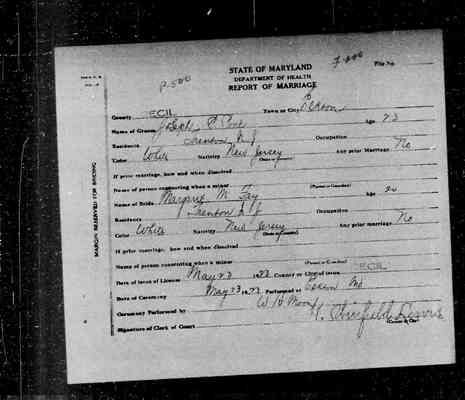 P-500
F-000
STATE OF MARYLAND
DEPARTMENT OF HEALTH
REPORT OF MARRIAGE
File No.
County CECIL Town or City Elkton
Name of Groom Joseph P. Age 23
Residence Trenton N.J. Occupation
Color White Nativity New Jersey (State or Country) Any prior Marriage No
If prior marriage, how and when dissolved
Name of person consenting when a minor (Parent or Guardian)
Name of Bride Margaret M. Fay Age 20
Residence Trenton N.J. Occupation
Color White Nativity New Jersey (State or Country) Any prior marriage No
If prior marriage, how and when dissolved
Name of person consenting when a minor (Parent or Guardian)
Date of Issue of License May 23 County or City of issue CECIL
Date of Ceremony May 23 Performed at Md
Ceremony Performed by W. H. Moore
Signature of Clerk of Court Lewis
MARGIN RESERVED FOR BINDING